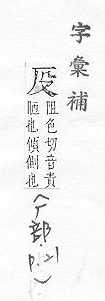 字彙補
阻色切音責
陋也傾側也
(厂部.p.21)